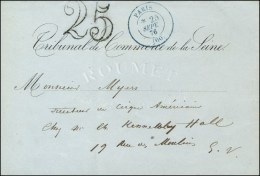 25
PARIS
23
SEPT
76
(60)
Tribunal de Commerce de la Seine
ROUMET
Monsieur Myers
Directeur du Cirque Américain
Chez M. de Kennebby Hall
19 Rue des Moulins E. V.